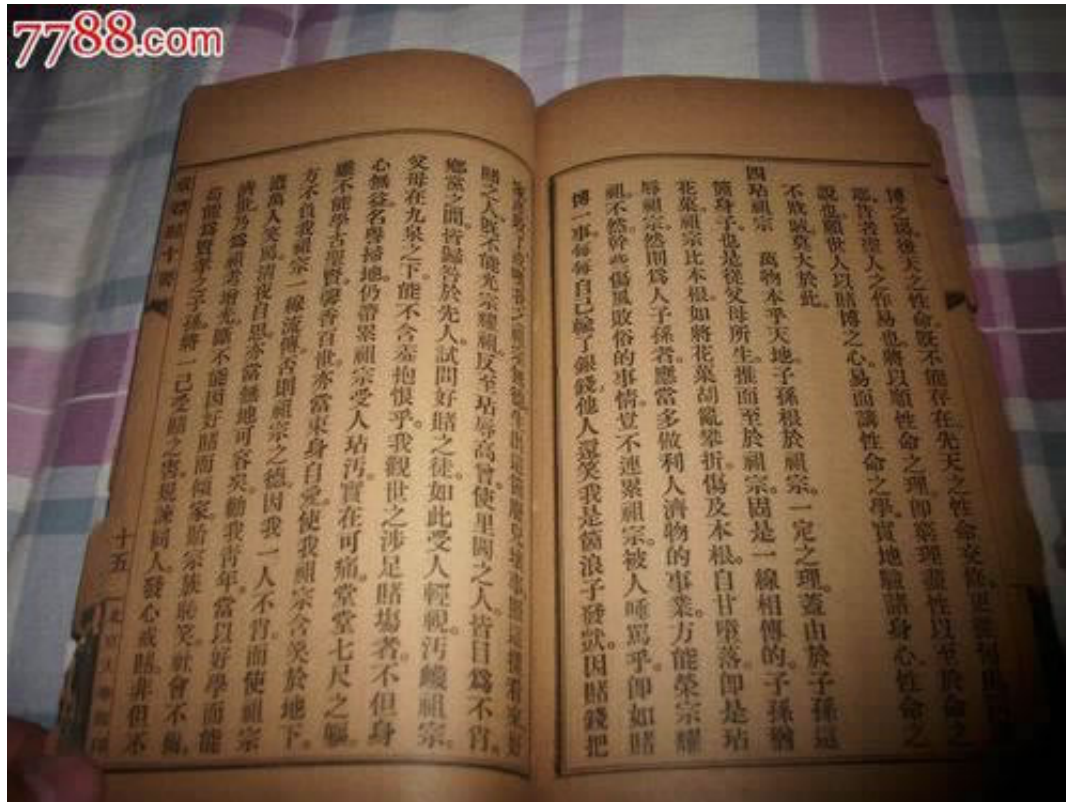 7788.com
博之場後天之性命既不能存在先天之性命交
耶昔者聖人之作易也將以順性命之理即窮理盡性以至於命之
說也願世人以賭博之心易而講性命之學實地驗諸身心性命之
不戕賊莫大於此
四玷祖宗　萬物本乎天地子孫根於祖宗一定之理蓋由於子孫這
箇身子也是從父母所生推而至於祖宗固是一線相傳的子孫猶
花菓祖宗比木根如將花菓胡亂攀折傷及本根自甘墮落即是玷
辱祖宗然則為人子孫者應當多做利人濟物的事業方能榮宗耀
祖不然幹些傷風敗俗的事情豈不連累祖宗被人唾罵乎即如賭
博一事每每自己輸了銀錢他人還笑我是箇浪子發獃因賭錢把
賭之人既不能光宗耀祖反至玷辱高曾使里閭之人皆目為不肖
鄉黨之間皆歸咎於先人試問好賭之徒如此受人輕視汚衊祖宗
父母在九泉之下能不含羞抱恨乎我觀世之涉足賭場者不但身
心無益名譽掃地仍帶累祖宗受人玷汚實在可痛堂堂七尺之軀
雖不能學古聖賢馨香百世亦當束身自愛使我祖宗含笑於地下
方不負我祖宗一線流傳否則祖宗之德因我一人不肖而使祖宗
遭萬人笑罵清夜自思亦當無地可容矣勸我青年當以好學而能
濟世乃為祖考增光應不能因好賭而傾家貽宗族恥笑社會不齒
苟能為賢孝之子孫將一己受賭之害規諫同人發心戒賭非但不
十五